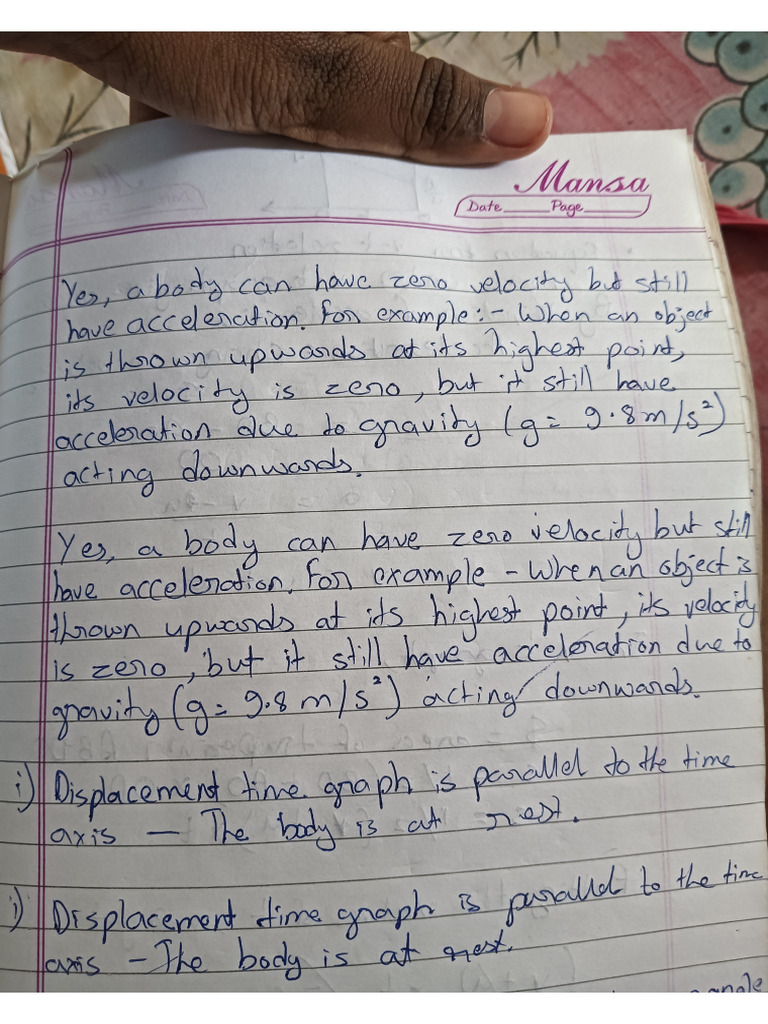 Mansa
Date Page
Yes, a body can have zero velocity but still
have acceleration. For example:- When an object
is thrown upwards at its highest point,
its velocity is zero, but it still have
acceleration due to gravity (g = 9.8 m/s²)
acting downwards.
Yes, a body can have zero velocity but still
have acceleration. For example - When an object is
thrown upwards at its highest point, its velocity
is zero, but it still have acceleration due to
gravity (g = 9.8 m/s²) acting downwards.
i) Displacement time graph is parallel to the time
axis — The body is at rest.
i) Displacement time graph is parallel to the time
axis – The body is at rest.
angle